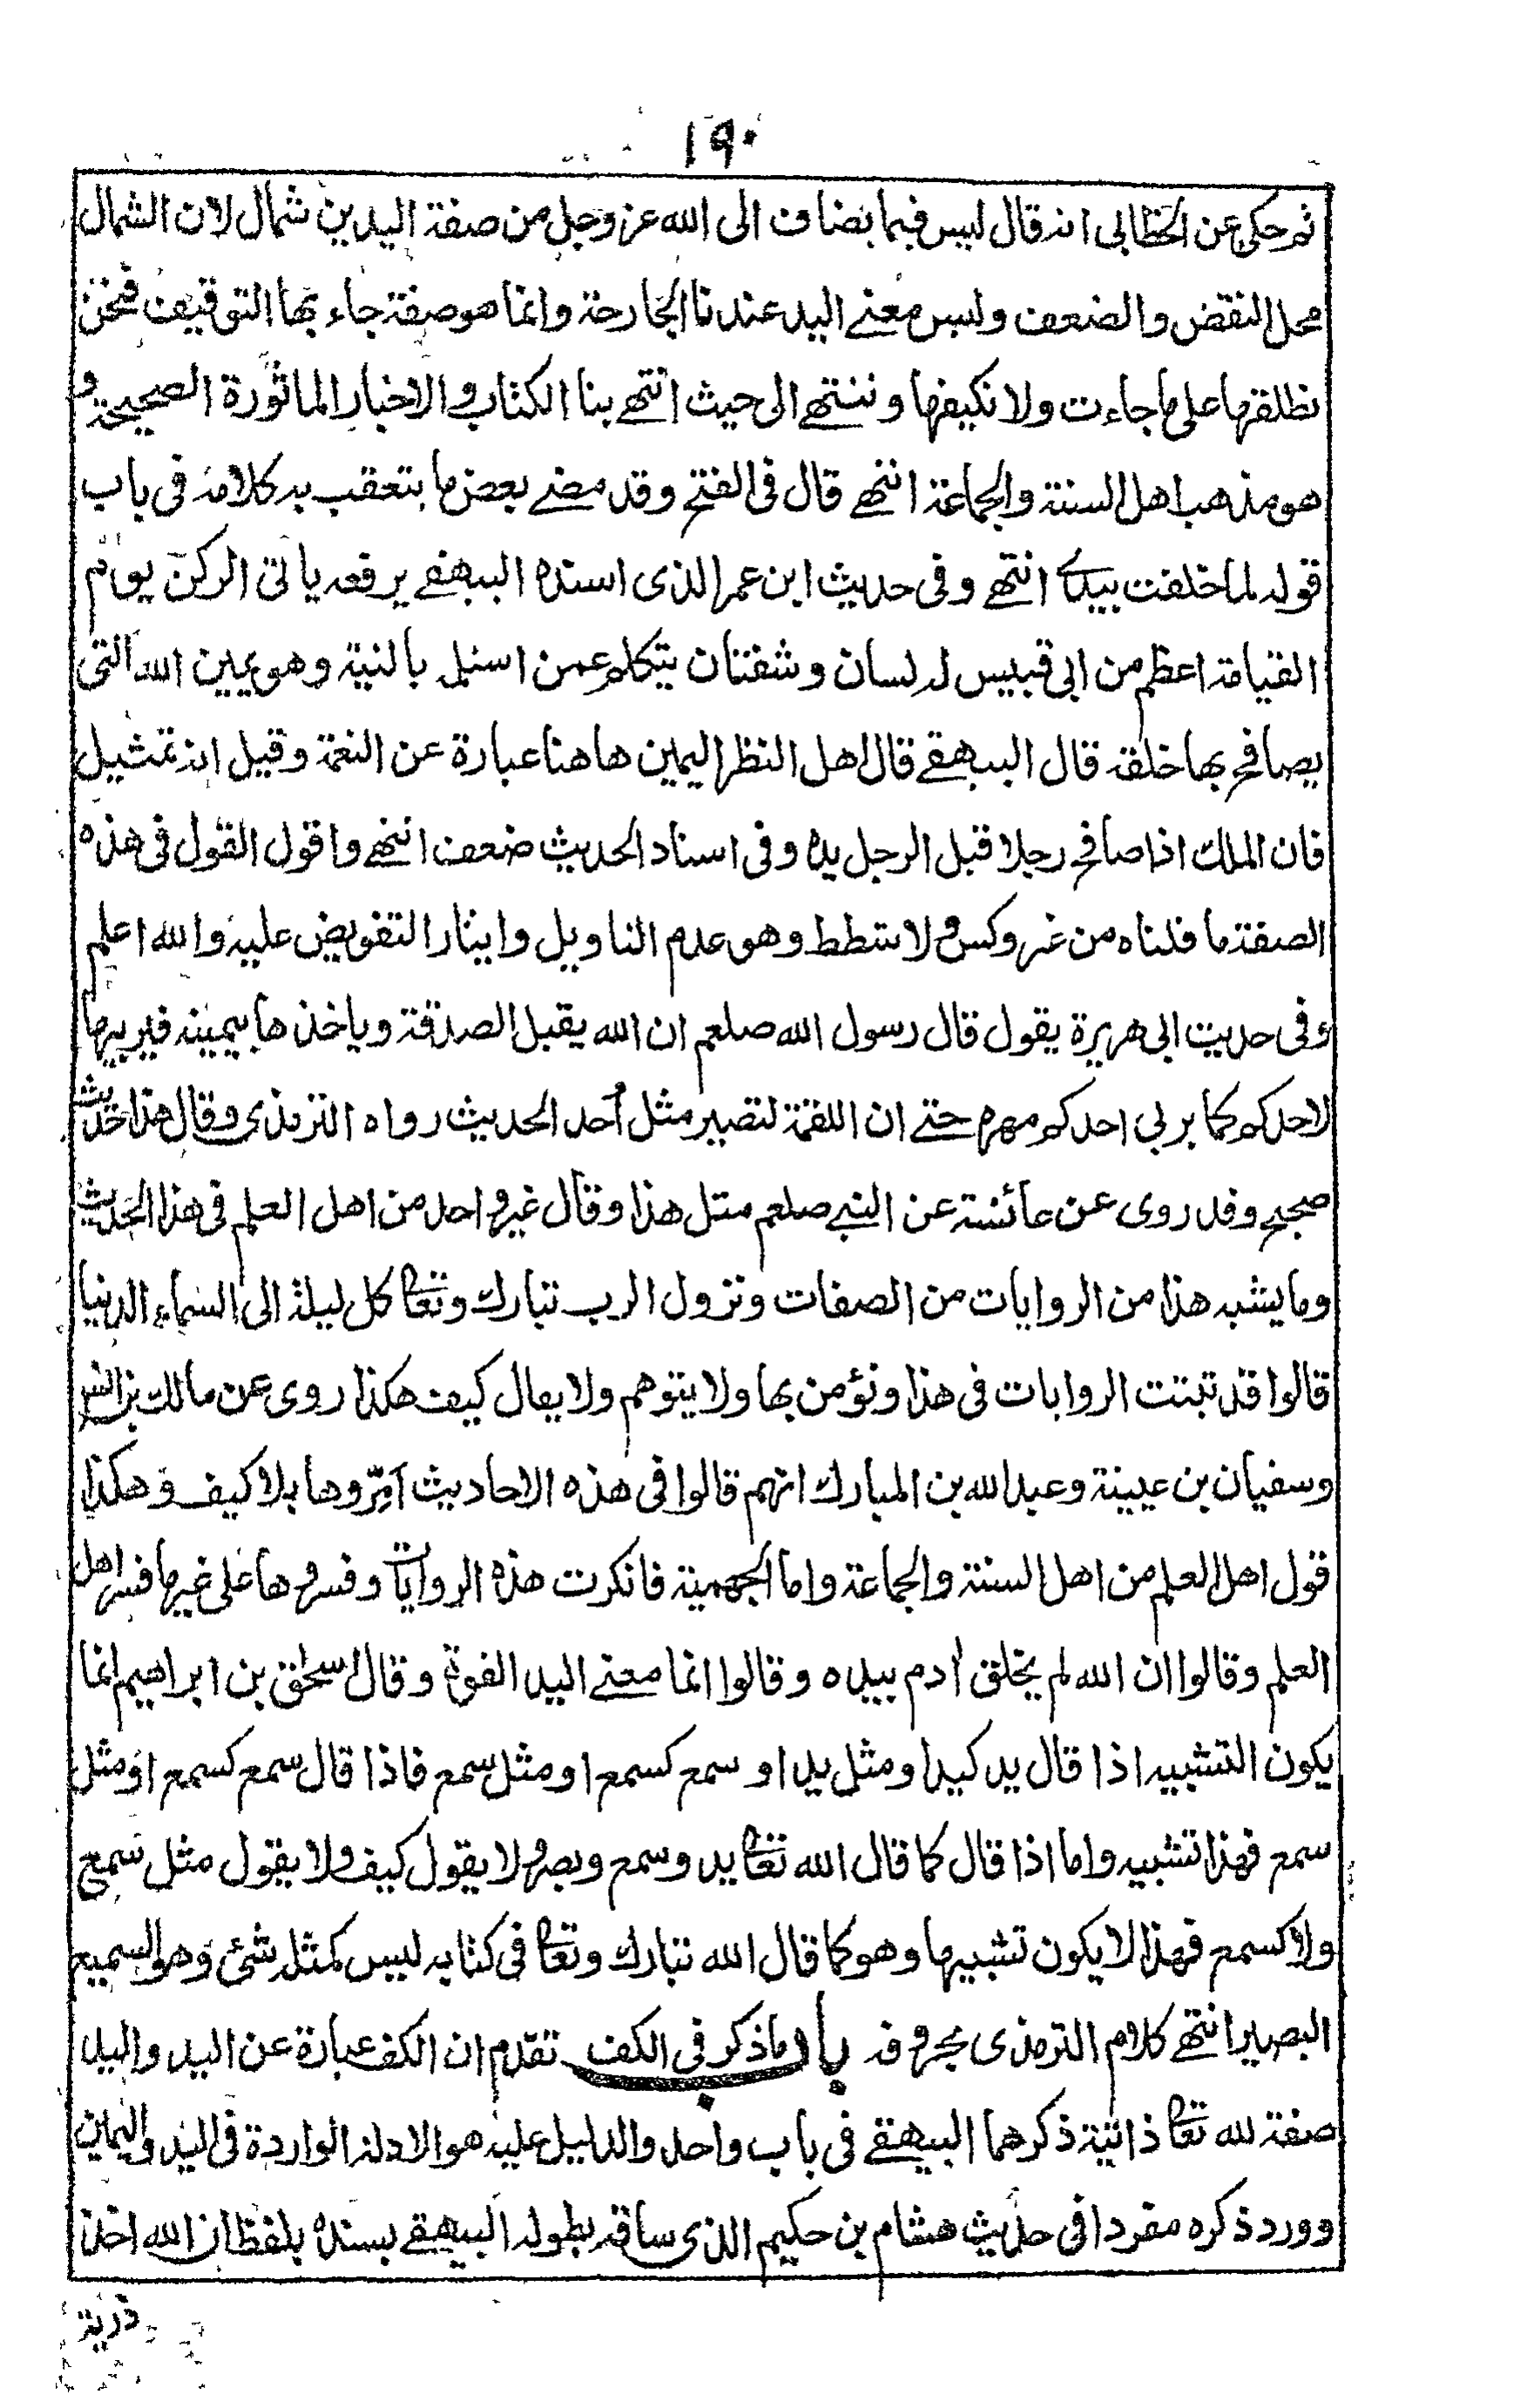 ١٩٠
ثم حكى عن الخطابي انه قال ليس فيما يضاف الى الله عز وجل من صفة اليدين شمال لان الشمال
محل النقض والضعف وليس معنے اليد عندنا الجارحة وانما هو صفة جاء بها التوقيف فنحن
نطلقها على ما جاءت ولا نكيفها وننتهے الى حيث انتهے بنا الكتاب والاخبار الماثورة الصحيحة و
هو مذهب اهل السنة والجماعة انتهے قال في الفتح وقد مضے بعض ما يتعقب به كلامه في باب
قوله لما خلقت بيدي انتهے وفي حديث ابن عمر الذي اسنده البيهقے يرفعه يأتي الركن يوم
القيامة اعظم من ابي قبيس له لسان وشفتان يتكلم عمن استلمه بالنية وهو يمين الله التي
يصافح بها خلقه قال البيهقے قال اهل النظر اليمين هاهنا عبارة عن النعمة وقيل انه تمثيل
فان الملك اذا صافح رجلا قبل الرجل يده وفي اسناد الحديث ضعف انتهے واقول القول في هذه
الصفة ما قلناه من غير وكس ولا شطط وهو عدم التاويل وايثار التفويض عليه والله اعلم
وفي حديث ابي هريرة يقول قال رسول الله صلعم ان الله يقبل الصدقة وياخذها بيمينه فيربيها
لاحدكم كما يربي احدكم مهره حتے ان اللقمة لتصير مثل أحد الحديث رواه الترمذي وقال هذا حديث
صحيح وقد روى عن عائشة عن النبے صلعم مثل هذا وقال غير واحد من اهل العلم في هذا الحديث
وما يشبه هذا من الروايات من الصفات ونزول الرب تبارك وتعا كل ليلة الى السماء الدنيا
قالوا قد تبتت الروايات في هذا ونؤمن بها ولا يتوهم ولا يقال كيف هكذا روى عن مالك بن انس
وسفيان بن عيينة وعبد الله بن المبارك انهم قالوا في هذه الاحاديث أمِرّوها بلا كيف وهكذا
قول اهل العلم من اهل السنة والجماعة واما الجهمية فانكرت هذه الروايات وفسروها على غير ما فسر اهل
العلم وقالوا ان الله لم يخلق ادم بيده وقالوا انما معنے اليد القوة وقال اسحٰق بن ابراهيم انما
يكون التشبيه اذا قال يد كيد او مثل يد او سمع كسمع او مثل سمع فاذا قال سمع كسمع او مثل
سمع فهذا تشبيه واما اذا قال كما قال الله تعا يد وسمع وبصر ولا يقول كيف ولا يقول مثل سمع
ولا كسمع فهذا لا يكون تشبيها وهو كما قال الله تبارك وتعا في كتابه ليس كمثله شئ وهو السميع
البصير انتهے كلام الترمذي بحروفه باب ما ذكر في الكف تقدم ان الكف عبارة عن اليد واليد
صفة لله تعا ذاتية ذكرهما البيهقے في باب واحد والدليل عليه هو الادلة الواردة في اليد واليمين
وورد ذكره مفردا في حديث هشام بن حكيم الذي ساقه بطوله البيهقے بسنده بلفظ ان الله اخذ
ذرية